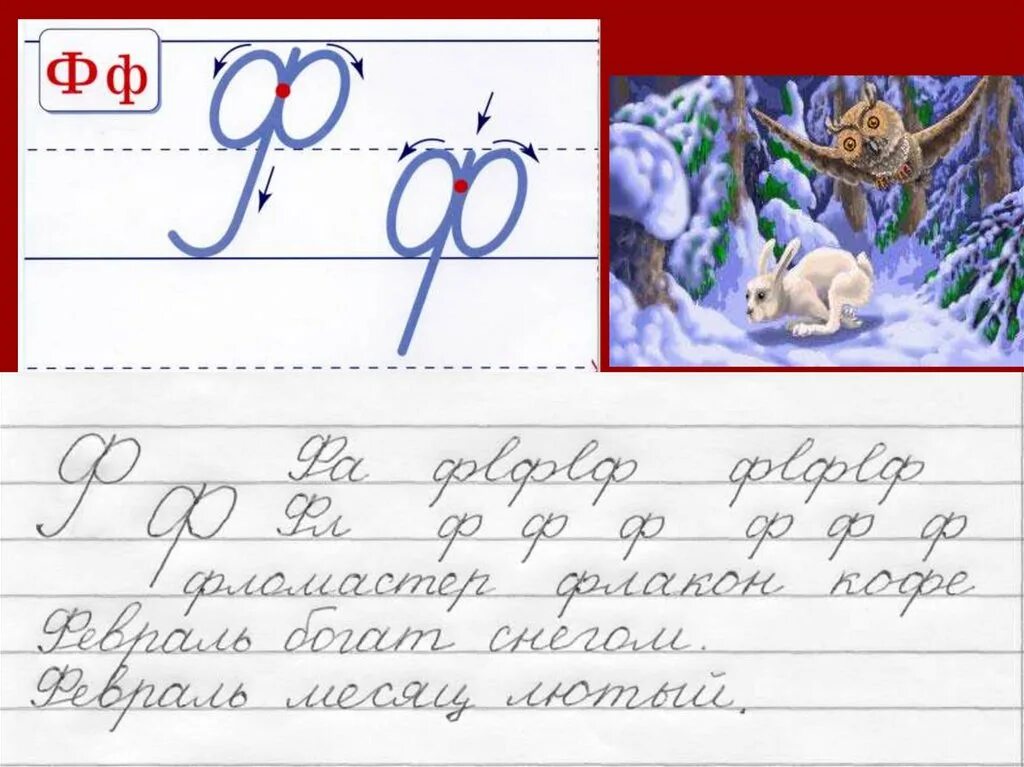 Ф ф
Ф ф
Ф Фа фıфıф фıфıф
ф Фл ф ф ф ф ф ф
фломастер флакон кофе
Февраль богат снегом.
Февраль месяц лютый.